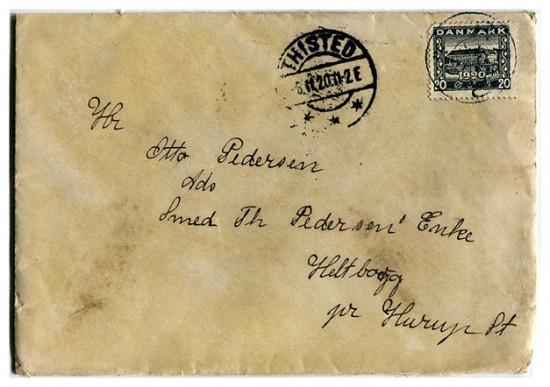 THISTED
6.11.20.11-2 E
DANMARK
1920
20 ØRE 20
Hr
Otto Pedersen
Ads
Smed Th Pedersens' Enke
Heltborg
pr Hurup St